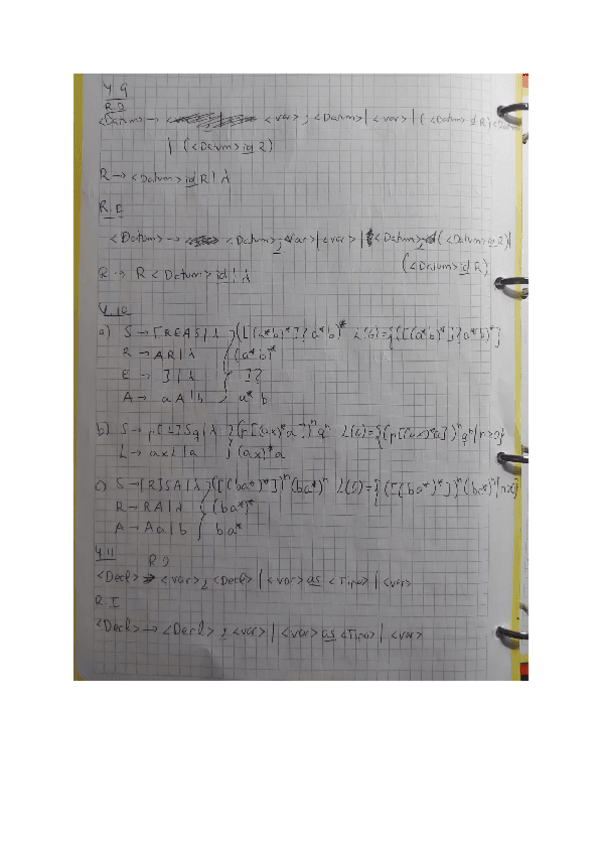 4.9
R.D
<Datum> → <var> ; <Datum> | <var> | ( <Datum> id R) ; <Datum>
| (<Datum> id R)
R → <Datum> id R | λ
R.I
<Datum> → <Datum> ; <var> | <var> | <Datum> ; (<Datum> id R) |
(<Datum> id R)
R → R <Datum> id | λ
4.10
a) S → [REAS | λ } ([(a*b)*]? a*b)* L(G)={([(a*b)*]? a*b)*}
R → AR | λ (a*b)*
E → ] | λ ]?
A → aA | b a*b
b) S → p[L]Sq | λ } (p[(ax)*a])ⁿqⁿ L(G)={(p[(ax)*a])ⁿqⁿ | n≥0}
L → axL | a } (ax)*a
c) S → [R]SA | λ } ([(ba*)*])ⁿ(ba*)ⁿ L(G)={([(ba*)*])ⁿ(ba*)ⁿ | n≥0}
R → RA | λ (ba*)*
A → Aa | b ba*
4.11 R.D
<Decl> → <var> ; <Decl> | <var> as <Tipo> | <var>
R.I
<Decl> → <Decl> ; <var> | <var> as <Tipo> | <var>